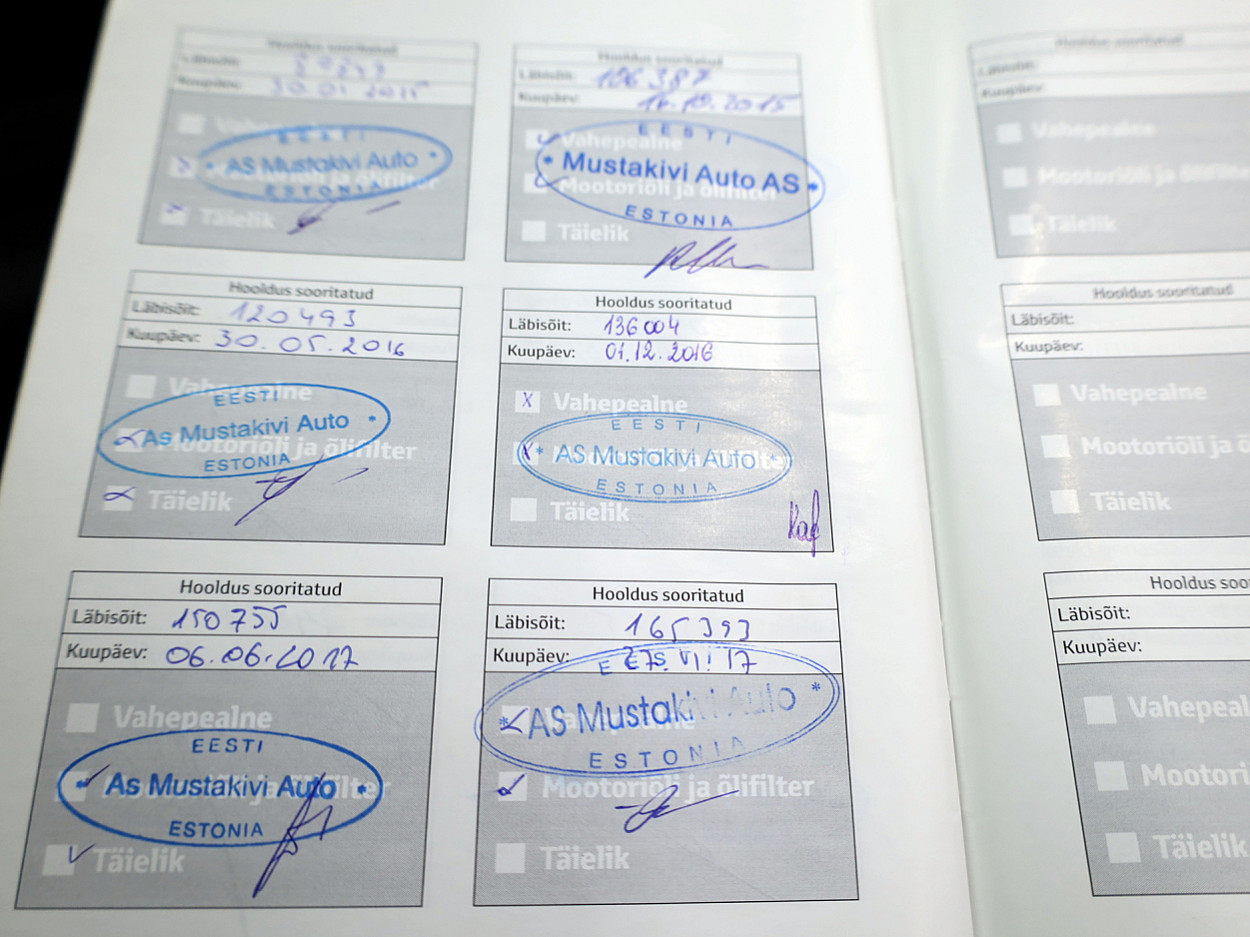 Hooldus sooritatud
Läbisõit:
Kuupäev: 30.01 2015
Vahepealne
EESTI
AS Mustakivi Auto
Mootoriõli ja õlifilter
ESTONIA
Täielik
Hooldus sooritatud
Läbisõit: 106 387
Kuupäev: 16.10.2015
EESTI
Vahepealne
Mustakivi Auto AS
Mootoriõli ja õlifilter
ESTONIA
Täielik
Hooldus sooritatud
Läbisõit: 120 493
Kuupäev: 30.05.2016
Vahepealne
EESTI
As Mustakivi Auto
Mootoriõli ja õlifilter
ESTONIA
Täielik
Hooldus sooritatud
Läbisõit: 136 004
Kuupäev: 01.12.2016
Vahepealne
EESTI
AS Mustakivi Auto
Mootoriõli ja õlifilter
ESTONIA
Täielik
Hooldus sooritatud
Läbisõit: 150 755
Kuupäev: 06.06.2017
Vahepealne
EESTI
As Mustakivi Auto
Mootoriõli ja õlifilter
ESTONIA
Täielik
Hooldus sooritatud
Läbisõit: 165 393
Kuupäev:
AS Mustakivi Auto
ESTONIA
Mootoriõli ja õlifilter
Täielik
Hooldus sooritatud
Läbisõit:
Kuupäev:
Vahepealne
Mootoriõli ja õlifilte
Täielik
Hooldus sooritatud
Läbisõit:
Kuupäev:
Vahepealne
Mootoriõli ja õ
Täielik
Hooldus soo
Läbisõit:
Kuupäev:
Vahepeal
Mootori
Täielik